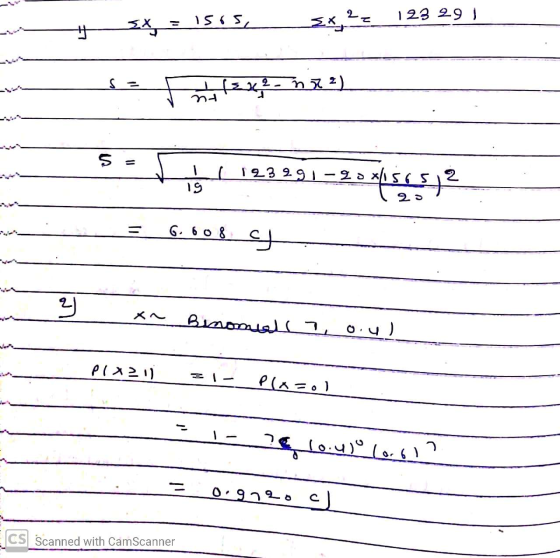 1) Σx₁ = 1565, Σx₁² = 123291
s = √ 1/(n-1) (Σx₁² - n x̄²)
S = √ 1/19 ( 123291 - 20 × (1565/20)²
= 6.608 c)
2) x~ Binomial ( 7, 0.4 )
P(x≥1) = 1 - P(x=0)
= 1 - 7c₀ (0.4)⁰ (0.6)⁷
= 0.9720 c)
CS Scanned with CamScanner